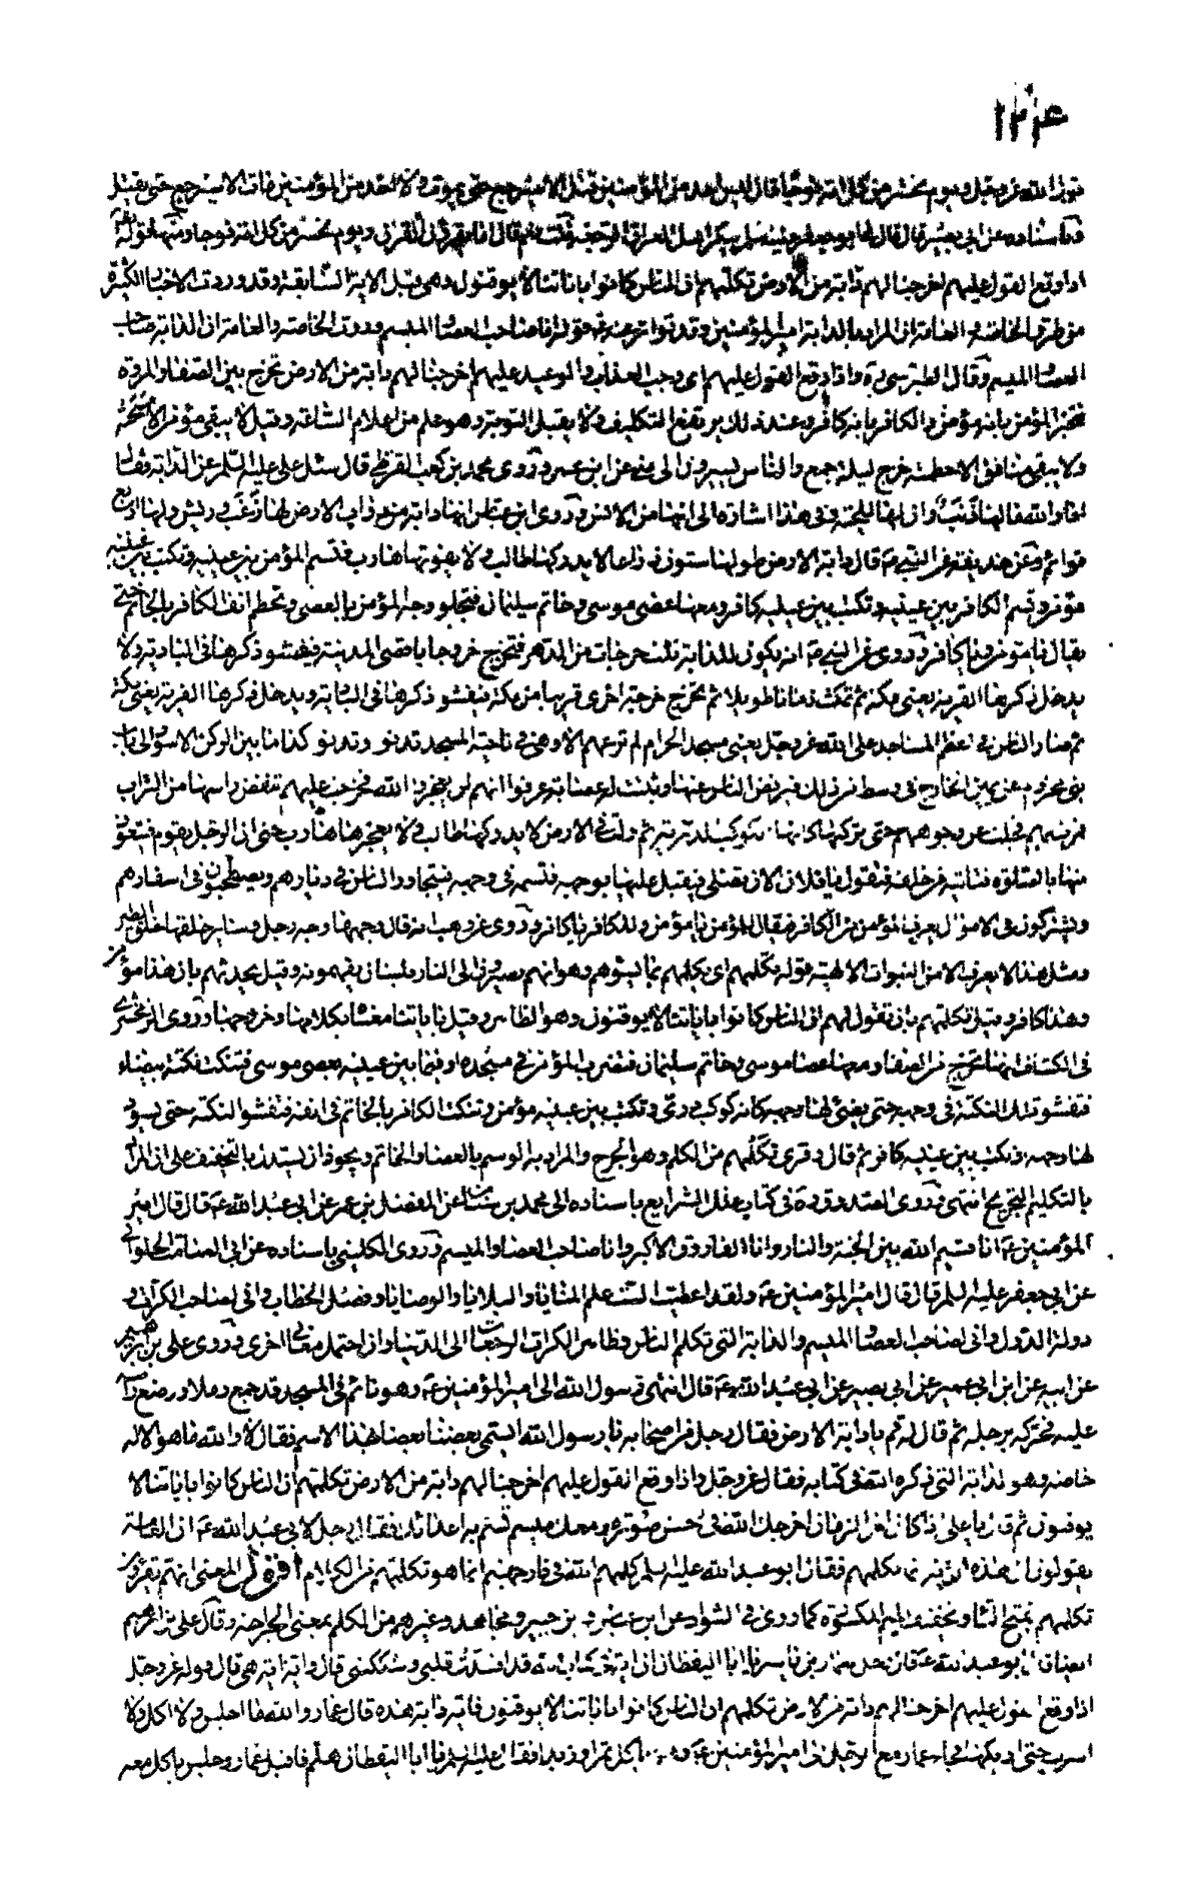 ١٢٠٤
قول الله عز وجل ويوم نحشر من كل امة فوجا قال ليس احد من المؤمنين قتل الا سيرجع حتى يموت ولا احد من المؤمنين مات الا سيرجع حتى يقتل
باسناده عن ابي بصير قال قال لي ابو جعفر ع ينكر اهل العراق الرجعة قلت نعم قال اما يقرؤن القرآن ويوم نحشر من كل امة فوجا ومنها قوله تع
اذا وقع القول عليهم اخرجنا لهم دابة من الارض تكلمهم ان الناس كانوا باياتنا لا يوقنون وهي قبل الاية السابقة وقد وردت الاخبار الكثيرة
من طرق الخاصة و العامة ان المراد بالدابة امير المؤمنين وقد تواتر عنه قوله انا صاحب العصا و الميسم وروت الخاصة والعامة ان الدابة صاحب
العصا و الميسم وقال الطبرسي ره واذا وقع القول عليهم اي وجب العذاب والوعيد عليهم اخرجنا لهم دابة من الارض تخرج بين الصفا والمروة
فتخبر المؤمن بانه مؤمن والكافر بانه كافر وعند ذلك يرتفع التكليف ولا يقبل التوبة وهو علم من اعلام الساعة وقيل لا يبقى مؤمن الا مسحته
ولا يبقى منافق الا حطمته تخرج ليلة جمع والناس يسيرون الى منى عن ابن عمر وروى محمد بن كعب القرظي قال سئل علي عليه السلم عن الدابة فقال
اما والله ما لها ذنب وان لها للحية وفي هذا اشارة الى انها من الانس وروى ابن عباس انها دابة من دواب الارض لها زغب وريش ولها اربع
قوائم وعن حذيفة عن النبي ص قال دابة الارض طولها ستون ذراعا لا يدركها طالب ولا يفوتها هارب فتسم المؤمن بين عينيه وتكتب بين عينيه
مؤمن وتسم الكافر بين عينيه وتكتب بين عينيه كافر ومعها عصى موسى وخاتم سليمان فتجلو وجه المؤمن بالعصى وتحطم انف الكافر بالخاتم حتى
يقال يا مؤمن ويا كافر وروى عن النبي ص انه يكون للدابة ثلث خرجات من الدهر فتخرج خروجا باقصى المدينة فيفشو ذكرها في البادية ولا
يدخل ذكرها القرية يعني مكة ثم تمكث زمانا طويلا ثم تخرج خرجة اخرى قريبا من مكة فيفشو ذكرها في البادية ويدخل ذكرها القرية يعني مكة
ثم صار الناس في اعظم المساجد على الله عز وجل يعني مسجد الحرام لم ترعهم الا وهي في ناحية المسجد تدنو وتدنو كذا ما بين الركن الاسود الى باب
بني مخزوم عن يمين الخارج في وسط من ذلك فيرفض الناس عنها وتثبت لها عصابة عرفوا انهم لن يعجزوا الله فخرجت عليهم تنفض راسها من التراب
فمرت بهم فجلت عن وجوههم حتى تركتها كانها الكواكب الدرية ثم ولت في الارض لا يدركها طالب ولا يعجزها هارب حتى ان الرجل يقوم فيتعوذ
منها بالصلوة فتاتيه من خلفه فتقول يا فلان الان تصلي فيقبل عليها بوجهه فتسمه في وجهه فيتجاور الناس في ديارهم ويصطحبون في اسفارهم
ويشتركون في الاموال يعرف المؤمن من الكافر فيقال للمؤمن يا مؤمن وللكافر يا كافر وروى عن وهب انه قال وجهها وجه رجل وساير خلقها خلق الطير
ومثل هذا لا يعرف الا من النبوات الالهية قوله تكلمهم اي تكلمهم بما يسوؤهم وهو انهم يصيرون الى النار بلسان يفهمونه وقيل تحدثهم بان هذا مؤمن
وهذا كافر وقيل تكلمهم بان تقول لهم ان الناس كانوا باياتنا لا يوقنون وهو الظاهر وقيل باياتنا معناه بكلامها وخروجها وروى الزمخشري
في الكشاف انها تخرج من الصفا ومعها عصا موسى وخاتم سليمان فتضرب المؤمن في مسجده او فيما بين عينيه بعصى موسى فتنكت نكتة بيضاء
فتفشو تلك النكتة في وجهه حتى يضيء لها وجهه كانه كوكب دري وتكتب بين عينيه مؤمن وتنكت الكافر بالخاتم في انفه فتفشو النكتة حتى يسود
لها وجهه وتكتب بين عينيه كافر ثم قال وقرئ تكلمهم من الكلم وهو الجرح والمراد به الوسم بالعصا والخاتم ويجوز ان يستدل بالتخفيف على ان المراد
بالتكليم التجريح انتهى وروى الصدوق ره في كتاب علل الشرايع باسناده الى محمد بن سنان عن المفضل بن عمر عن ابي عبد الله ع قال قال امير
المؤمنين ع انا قسيم الله بين الجنة والنار وانا الفاروق الاكبر وانا صاحب العصا والميسم وروى الكليني باسناده عن ابي الصامت الحلواني
عن ابي جعفر عليه السلم قال قال امير المؤمنين ع ولقد اعطيت الست علم المنايا والبلايا والوصايا وفصل الخطاب واني لصاحب الكرات و
دولة الدول واني لصاحب العصا و الميسم والدابة التي تكلم الناس وظاهر الكرات الرجعات الى الدنيا وان احتمل معاني اخرى وروى علي بن ابرهيم
عن ابيه عن ابن ابي عمير عن ابي بصير عن ابي عبد الله ع قال انتهى رسول الله الى امير المؤمنين ع وهو نائم في المسجد قد جمع رملا ووضع راسه
عليه فحركه برجله ثم قال له قم يا دابة الارض فقال رجل من اصحابه يا رسول الله ايسمى بعضنا بعضا بهذا الاسم فقال لا والله ما هو الا له
خاصة وهو الدابة التي ذكره الله في كتابه فقال عز وجل واذا وقع القول عليهم اخرجنا لهم دابة من الارض تكلمهم ان الناس كانوا باياتنا لا
يوقنون ثم قال يا علي اذا كان اخر الزمان اخرجك الله في احسن صورة ومعك ميسم تسم به اعداءك فقال رجل لابي عبد الله ع ان العامة
يقولون ان هذه الاية انما تكلمهم فقال ابو عبد الله عليه السلم كلمهم الله في نار جهنم انما هو تكلمهم من الكلام اقول المعنى انهم يقرؤن
تكلمهم بفتح التاء وتخفيف اللام المكسورة كما روى في الشواذ عن ابن عباس و بن جبير ومجاهد وغيرهم من الكلم بمعنى الجراحة وقال علي بن ابرهيم
ايضا قال ابو عبد الله ع قال رجل لعمار بن ياسر يا ابا اليقظان ان اية في كتاب الله قد افسدت قلبي وشككتني قال واية اية هي قال قوله عز وجل
اذا وقع القول عليهم اخرجنا لهم دابة من الارض تكلمهم ان الناس كانوا باياتنا لا يوقنون فاية دابة هذه قال عمار والله ما اجلس ولا اكل ولا
اشرب حتى اريكها فجاء عمار مع الرجل الى امير المؤمنين ع وهو ياكل تمرا وزبدا فقال عليه السلم يا ابا اليقظان هلم فاقبل عمار وجلس ياكل معه